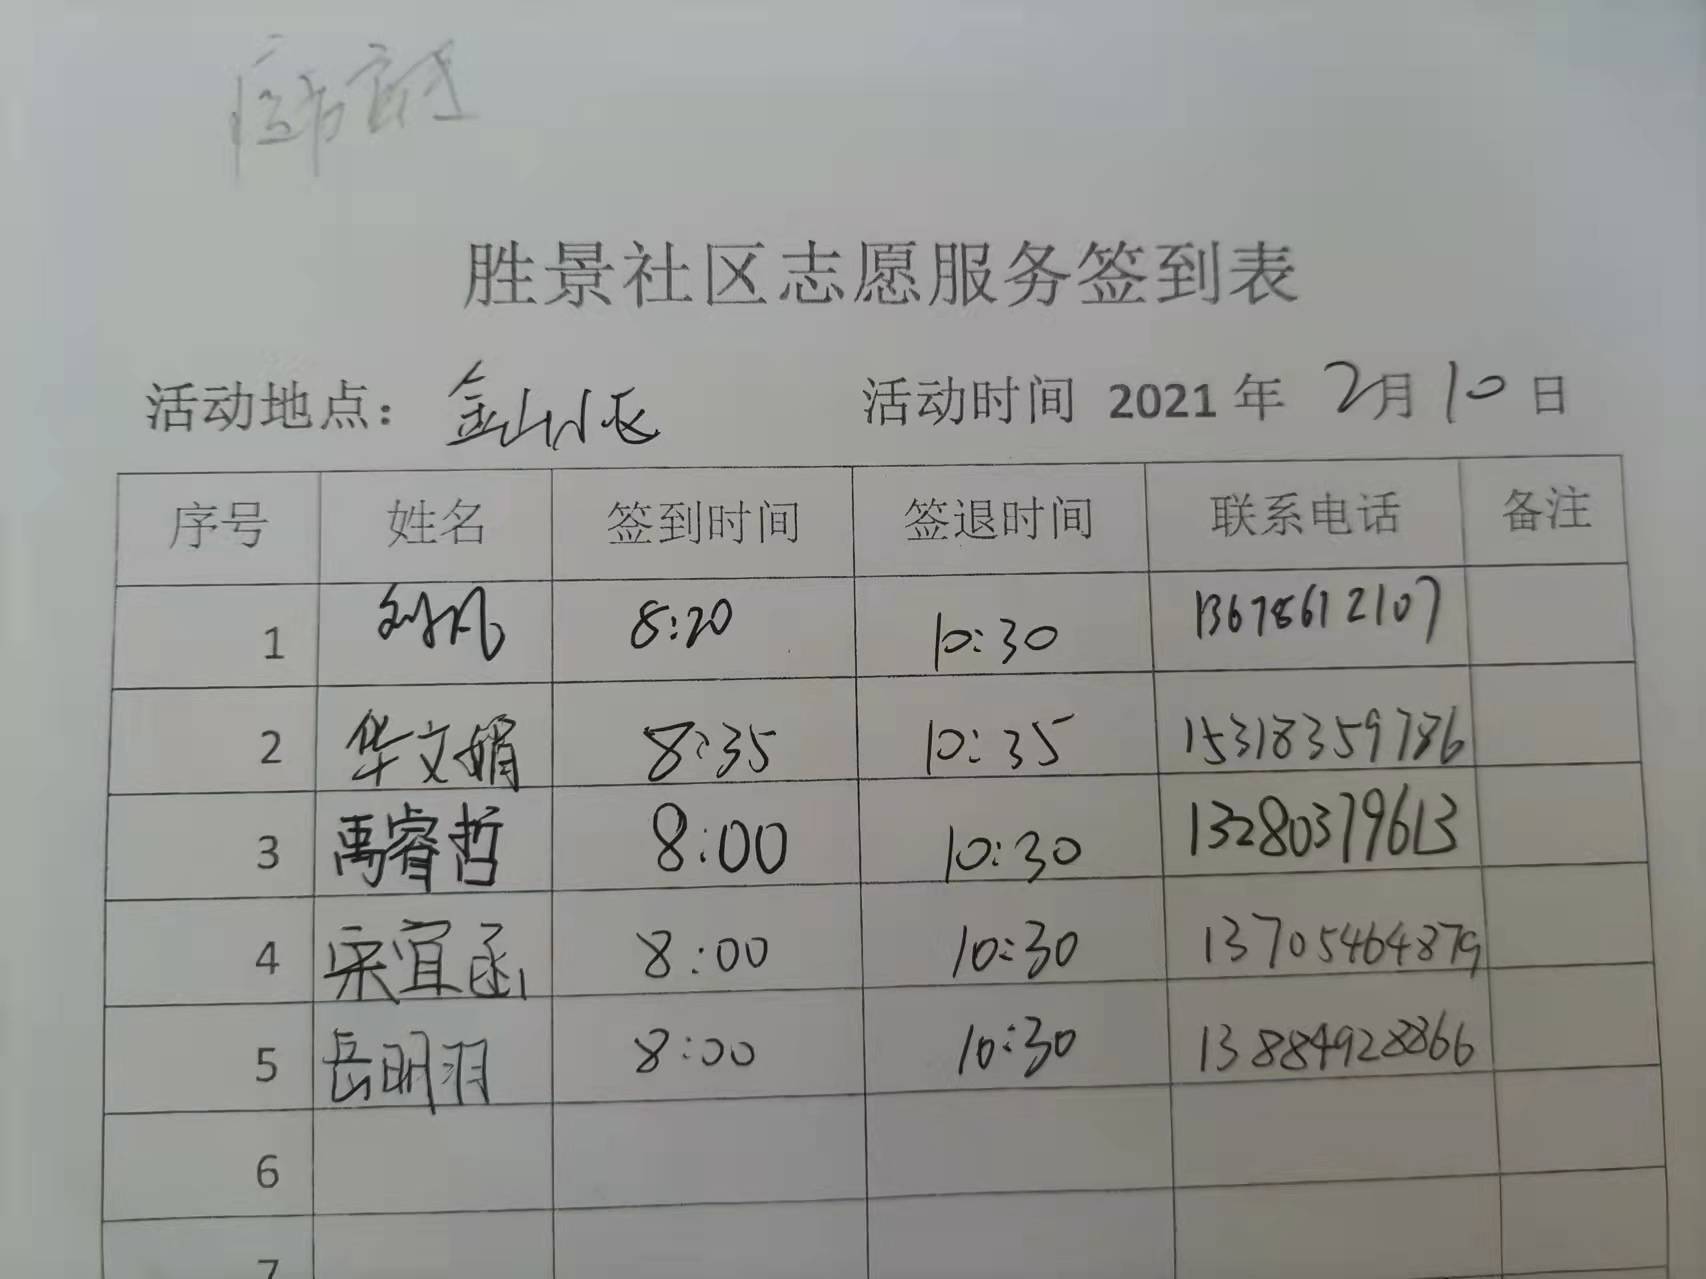 胜景社区志愿服务签到表
活动地点: 金山小区 活动时间 2021年 2月10日
序号 姓名 签到时间 签退时间 联系电话 备注
1 刘凤 8:20 10:30 13678612107
2 华文娟 8:35 10:35 15318359786
3 禹睿哲 8:00 10:30 13280379613
4 宋宜函 8:00 10:30 13705464879
5 岳明羽 8:00 10:30 13884928866
6
7